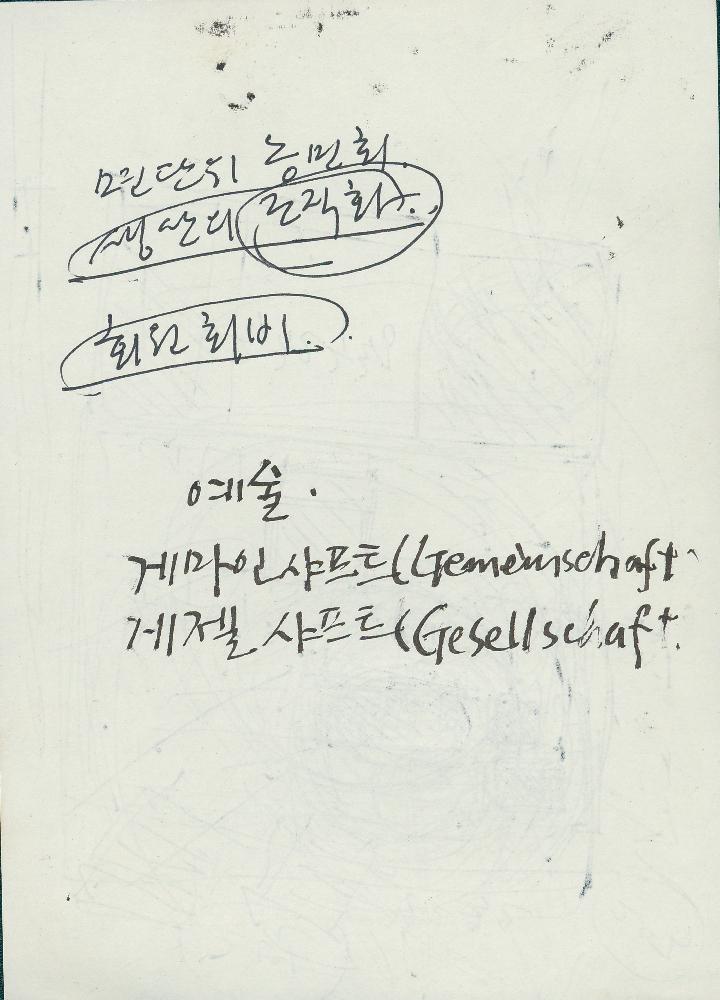 면단위 농민회.
생산의 조직화.
회원 회비.
예술.
게마인샤프트(Gemeinschaft.
게젤샤프트(Gesellschaft.